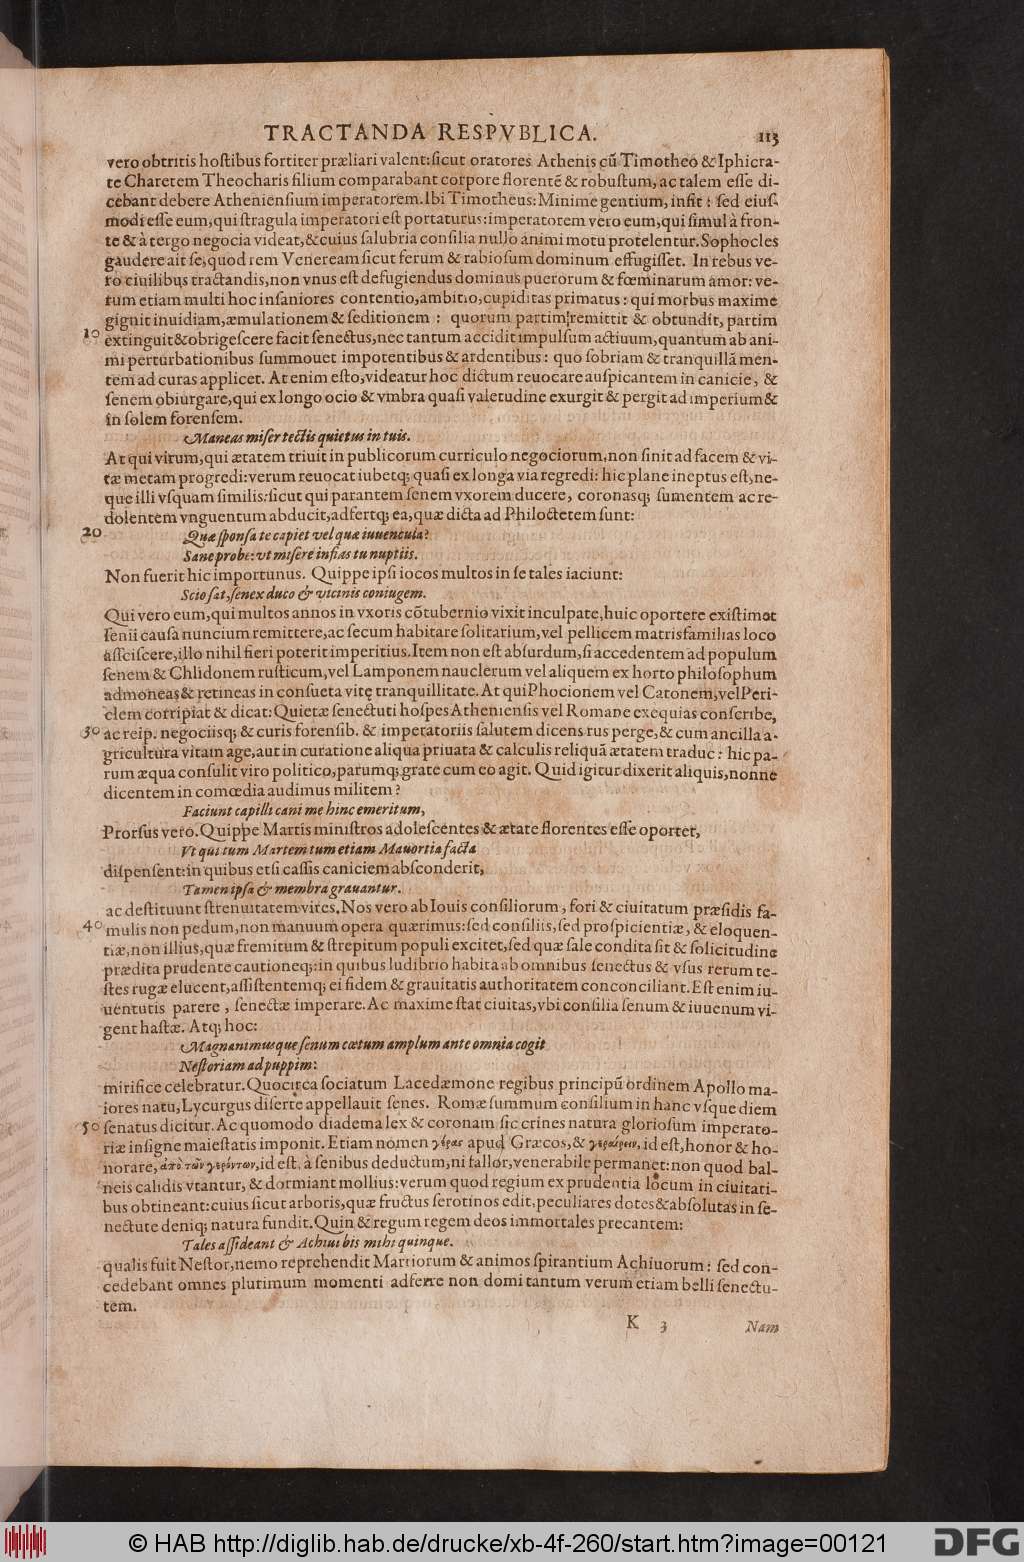 TRACTANDA RESPVBLICA. 113
vero obtritis hostibus fortiter præliari valent: sicut oratores Athenis cũ Timotheo & Iphicra-
te Charetem Theocharis filium comparabant corpore florentẽ & robustum, ac talem esse di-
cebant debere Atheniensium imperatorem. Ibi Timotheus: Minime gentium, infit: sed eius-
modi esse eum, qui stragula imperatori est portaturus: imperatorem vero eum, qui simul à fron-
te & à tergo negocia videat, & cuius salubria consilia nullo animi motu protelentur. Sophocles
gaudere ait se, quod rem Veneream sicut ferum & rabiosum dominum effugisset. In rebus ve-
ro ciuilibus tractandis, non vnus est defugiendus dominus puerorum & fœminarum amor: ve-
rum etiam multi hoc insaniores contentio, ambitio, cupiditas primatus: qui morbus maxime
gignit inuidiam, æmulationem & seditionem: quorum partim remittit & obtundit, partim
10 extinguit & obrigescere facit senectus, nec tantum accidit impulsum actiuum, quantum ab ani-
mi perturbationibus summouet impotentibus & ardentibus: quo sobriam & tranquillã men-
tem ad curas applicet. At enim esto, videatur hoc dictum reuocare auspicantem in canicie, &
senem obiurgare, qui ex longo ocio & vmbra quasi valetudine exurgit & pergit ad imperium &
in solem forensem.
Maneas miser tectis quietus in tuis.
At qui virum, qui ætatem triuit in publicorum curriculo negociorum, non sinit ad facem & vi-
tæ metam progredi: verum reuocat iubetq; quasi ex longa via regredi: hic plane ineptus est, ne-
que illi vsquam similis: sicut qui parantem senem vxorem ducere, coronasq; sumentem ac re-
dolentem vnguentum abducit, adfertq; ea, quæ dicta ad Philoctetem sunt:
20 Quæ sponsa te capiet vel quæ iuuencula?
Sane probe: vt misere infias tu nuptiis.
Non fuerit hic importunus. Quippe ipsi iocos multos in se tales iaciunt:
Scio sat, senex duco & vicinis coniugem.
Qui vero eum, qui multos annos in vxoris cõtubernio vixit inculpate, huic oportere existimat
senii causa nuncium remittere, ac secum habitare solitarium, vel pellicem matrisfamilias loco
assciscere, illo nihil fieri poterit imperitius. Item non est absurdum, si accedentem ad populum
senem & Chlidonem rusticum, vel Lamponem nauclerum vel aliquem ex horto philosophum
admoneas & retineas in consueta vitę tranquillitate. At qui Phocionem vel Catonem, vel Peri-
clem corripiat & dicat: Quietæ senectuti hospes Atheniensis vel Romane exequias conscribe,
30 ac reip. negociisq; & curis forensib. & imperatoriis salutem dicens rus perge, & cum ancilla a-
gricultura vitam age, aut in curatione aliqua priuata & calculis reliquã ætatem traduc: hic pa-
rum æqua consulit viro politico, parumq; grate cum eo agit. Quid igitur dixerit aliquis, nonne
dicentem in comœdia audimus militem?
Faciunt capilli cani me hinc emeritum,
Prorsus vero. Quippe Martis ministros adolescentes & ætate florentes esse oportet,
Vt qui tum Martem tum etiam Mauortia facta
dispensent: in quibus etsi cassis caniciem absconderit,
Tamen ipsa & membra grauantur.
ac destituunt strenuitatem vires. Nos vero ab Iouis consiliorum, fori & ciuitatum præsidis fa-
40 mulis non pedum, non manuum opera quærimus: sed consiliis, sed prospicientiæ, & eloquen-
tiæ, non illius, quæ fremitum & strepitum populi excitet, sed quæ sale condita sit & solicitudine
prædita prudente cautioneq;: in quibus ludibrio habita ab omnibus senectus & vsus rerum te-
stes rugæ elucent, assistentemq; ei fidem & grauitatis authoritatem conconciliant. Est enim iu-
uentutis parere, senectæ imperare. Ac maxime stat ciuitas, vbi consilia senum & iuuenum vi-
gent hastæ. Atq; hoc:
Magnanimusque senum cœtum amplum ante omnia cogit
Nestoriam ad puppim:
mirifice celebratur. Quocirca sociatum Lacedæmone regibus principũ ordinem Apollo ma-
iores natu, Lycurgus diserte appellauit senes. Romæ summum consilium in hanc vsque diem
50 senatus dicitur. Ac quomodo diadema lex & coronam sic crines natura gloriosum imperato-
riæ insigne maiestatis imponit. Etiam nomen γέρας apud Græcos, & γεραίρειν, id est, honor & ho-
norare, ἀπὸ τῶν γερόντων, id est. à senibus deductum, ni fallor, venerabile permanet: non quod bal-
neis calidis vtantur, & dormiant mollius: verum quod regium ex prudentia locum in ciuitati-
bus obtineant: cuius sicut arboris, quæ fructus serotinos edit, peculiares dotes & absolutas in se-
nectute deniq; natura fundit. Quin & regum regem deos immortales precantem:
Tales assideant & Achiui bis mihi quinque.
qualis fuit Nestor, nemo reprehendit Martiorum & animos spirantium Achiuorum: sed con-
cedebant omnes plurimum momenti adferre non domi tantum verum etiam belli senectu-
tem.
K 3 Nam
© HAB http://diglib.hab.de/drucke/xb-4f-260/start.htm?image=00121
DFG